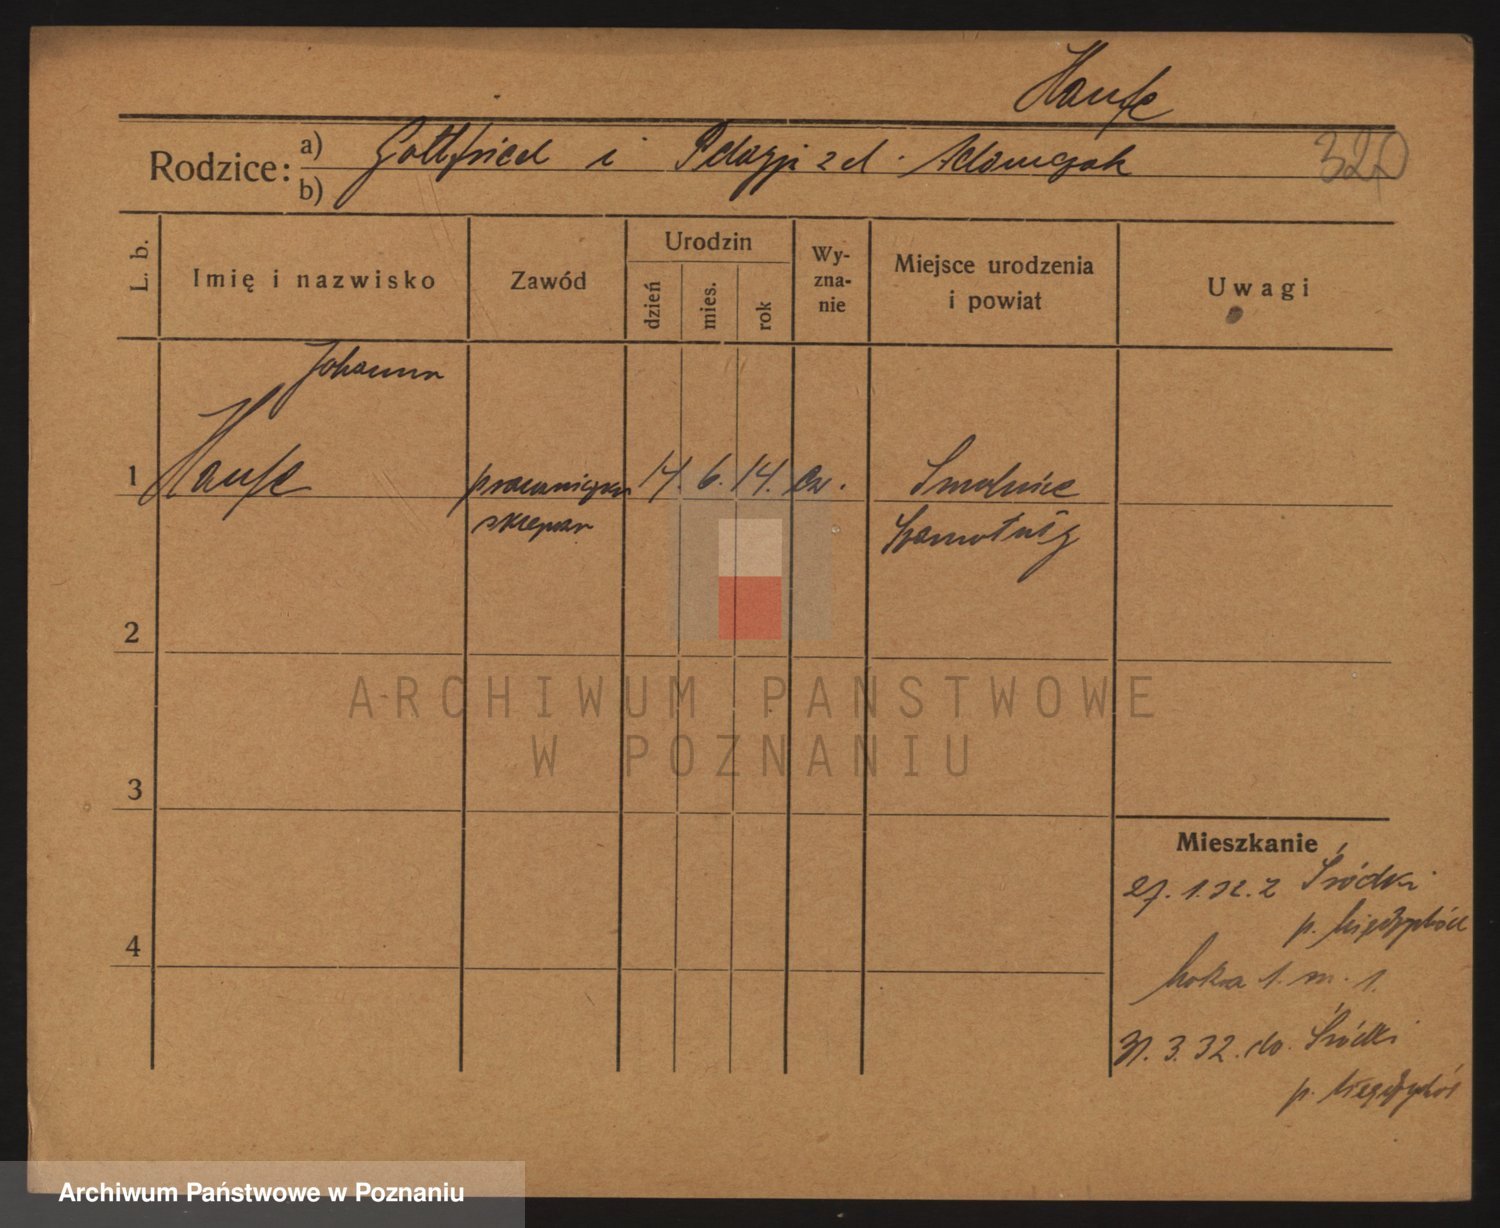 Hanfe
Rodzice: a) Gottfried i Pelagji z d. Adamczak
b)
320
L. b.
Imię i nazwisko
Zawód
Urodzin
dzień
mies.
rok
Wy-
zna-
nie
Miejsce urodzenia
i powiat
Uwagi
Johanna
1 Hanfe 14. 6. 14. ew. Smolnice
Szamotuły
2
3
4
ARCHIWUM PAŃSTWOWE
W POZNANIU
Mieszkanie
27. 1. 32. z Śródki
p. Międzychód
1. m. 1.
31. 3. 32. do Śródki
p. Międzychód
Archiwum Państwowe w Poznaniu